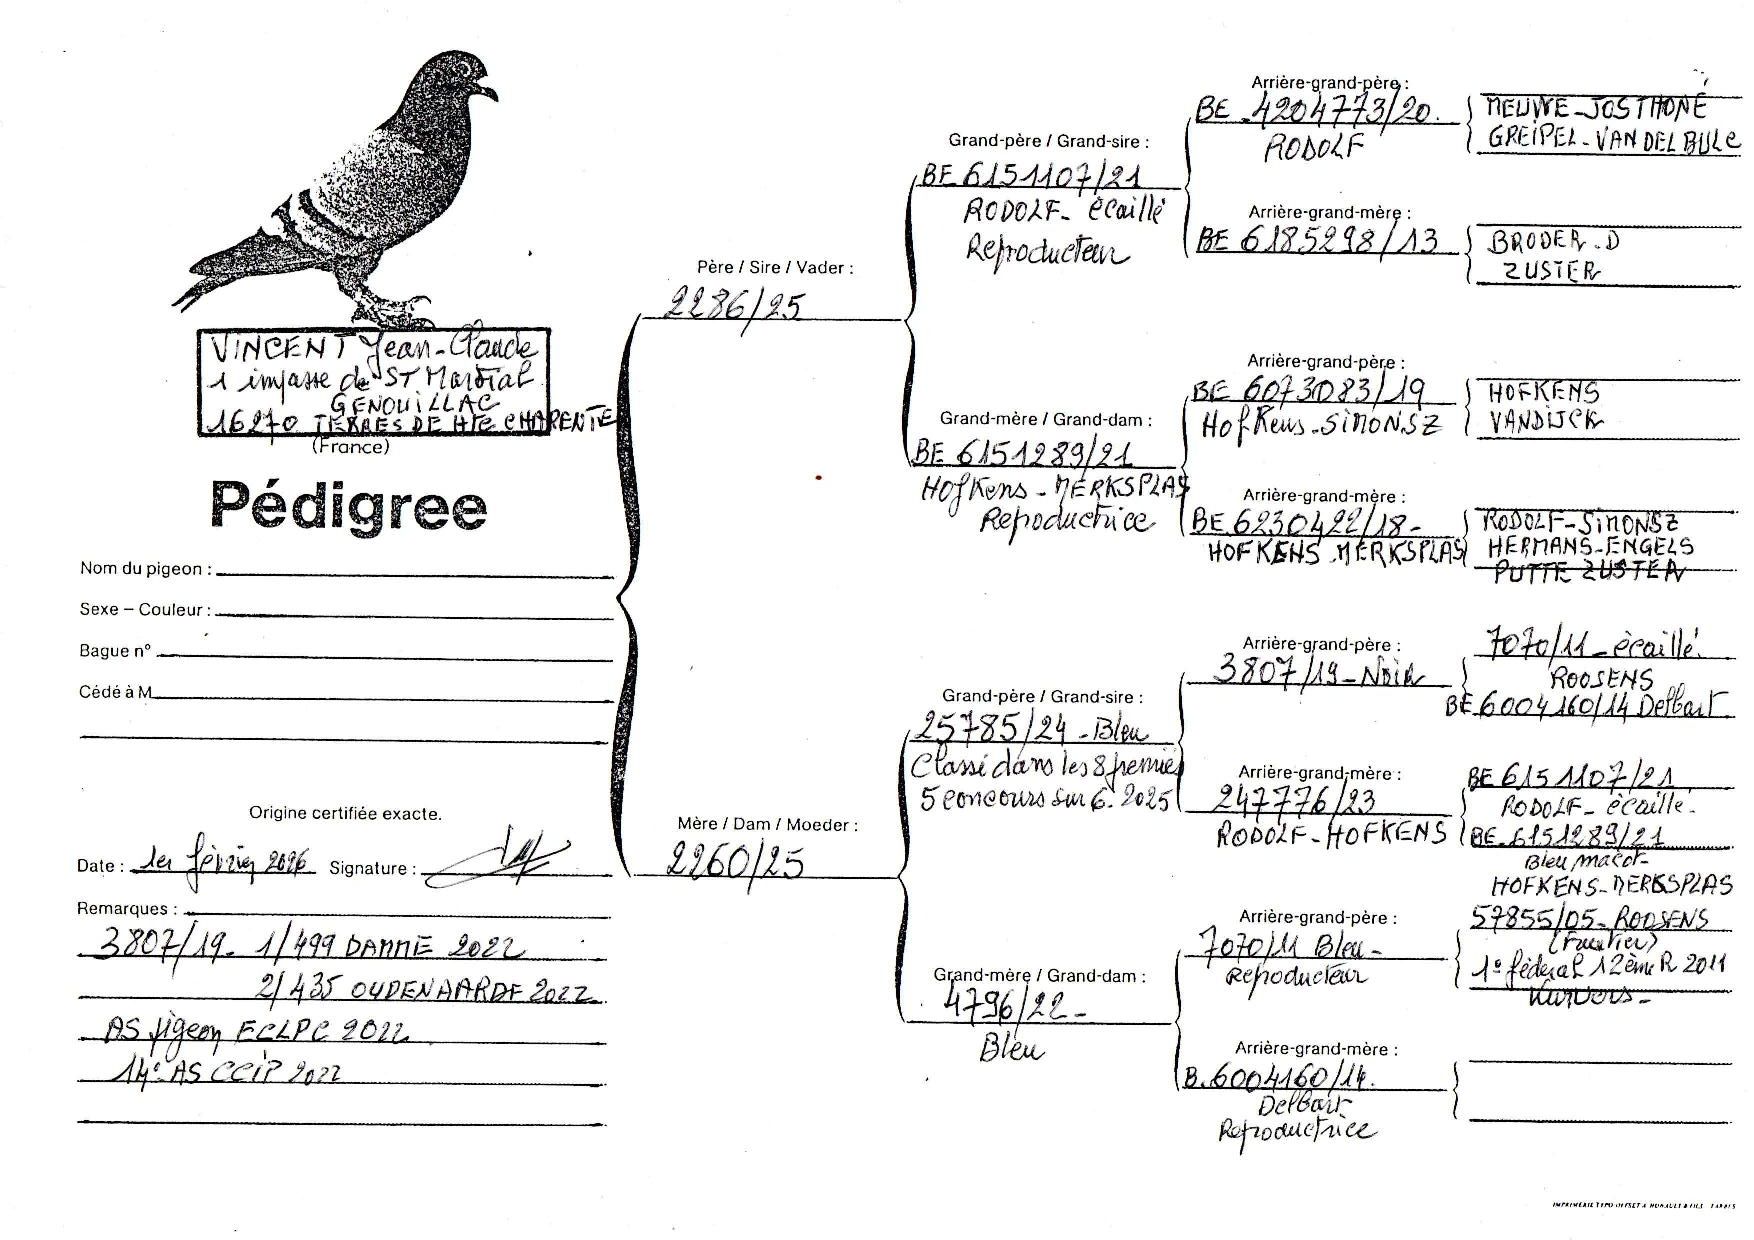 VINCENT Jean-Claude
1 impasse de ST Martial
GENOUILLAC
16270 TERRES DE HTE CHARENTE
(France)
Pédigree
Nom du pigeon :
Sexe – Couleur :
Bague n°
Cédé à M
Origine certifiée exacte.
Date : 1er février 2026 Signature :
Remarques :
3807/19- 1/499 DAMME 2022
2/435 OUDENAARDE 2022
AS pigeon ECLPC 2022
14e AS CCIP 2022
Père / Sire / Vader :
2286/25
Mère / Dam / Moeder :
2260/25
Grand-père / Grand-sire :
BE 6151107/21
RODOLF- écaillé
Reproducteur
Grand-mère / Grand-dam :
BE 6151289/21
Hofkens - MERKSPLAS
Reproductrice
Grand-père / Grand-sire :
25785/24 - Bleu
Classé dans les 8 premiers
5 concours sur 6. 2025
Grand-mère / Grand-dam :
4796/22-
Bleu
Arrière-grand-père :
BE 4204773/20
RODOLF
Arrière-grand-mère :
BE 6185298/13
Arrière-grand-père :
BE 6073083/19
Hofkens-SIMONSZ
Arrière-grand-mère :
BE 6230422/18-
HOFKENS MERKSPLAS
Arrière-grand-père :
3807/19-Noir
Arrière-grand-mère :
247776/23
RODOLF-HOFKENS
Arrière-grand-père :
7070/11 Bleu-
Reproducteur
Arrière-grand-mère :
B.6004160/14.
Delbart
Reproductrice
MEUWE-JOSTHONÉ
GREIPEL-VAN DEL BULC
BRODER.D
ZUSTER
HOFKENS
VANDIJCK
RODOLF-SIMONSZ
HERMANS-ENGELS
PUTTE ZUSTER
7070/11-écaillé
ROOSENS
BE 6004160/14 Delbart
BE 6151107/21
RODOLF- écaille-
BE.6151289/21
Bleu macot-
HOFKENS-MERKSPLAS
57855/05-ROOSENS
1° fédéral 12ème R 2011